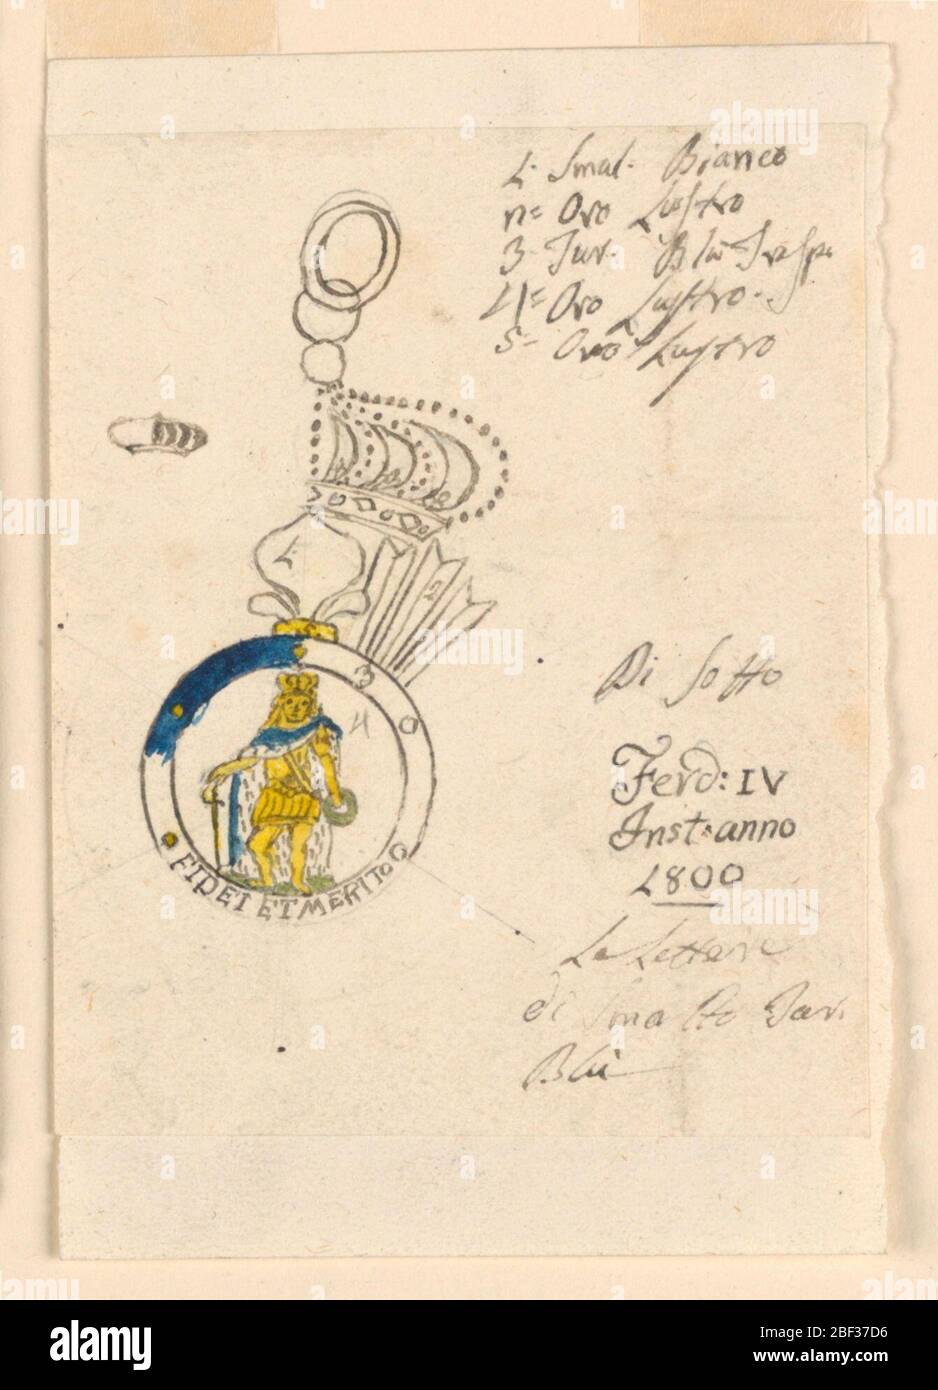 1. Smal. Bianco
n= Oro Lustro
3- Tur. Blù Trasp.
4= Oro Lustro.
5- Oro Lustro
1
2
3
4
FIDEI ET MERITO
Di Sotto
Ferd: IV
Inst: anno
1800
Le Lettere
di Smalto Tur.
Blù
alamy
Image ID: 2BF37D6
www.alamy.com